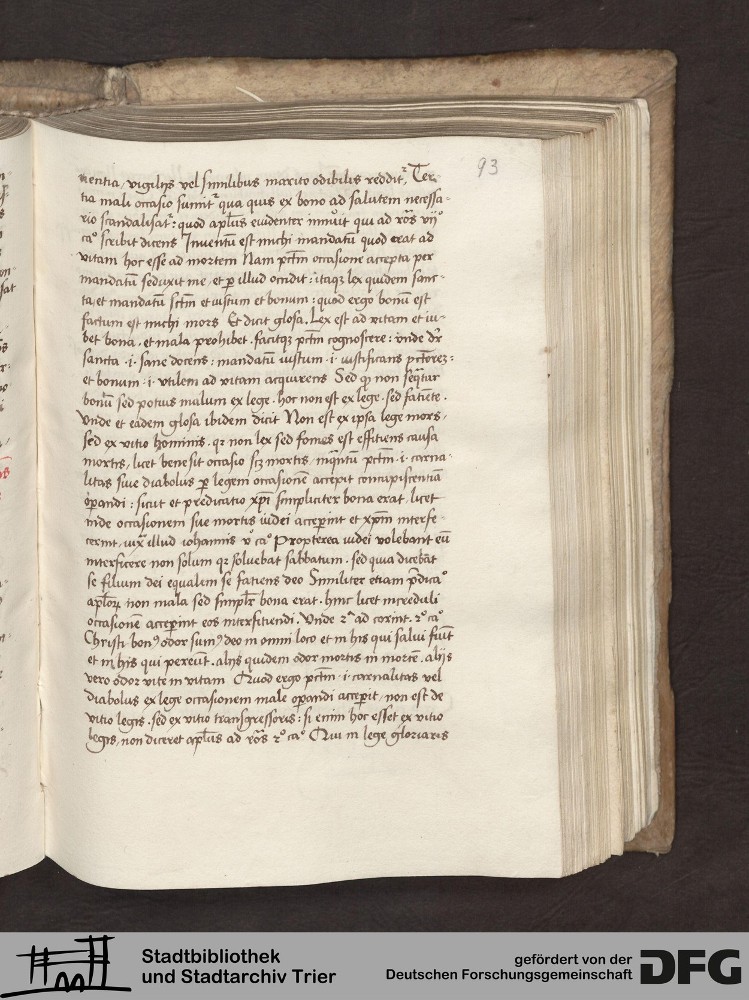 93
nentia, vigilijs vel similibus marito odibilis reddit᷑, Ter-
tia mali occasio sumit᷑ qua quis ex bono ad salutem necessa-
rio scandalisat᷑: quod apl̃us euidenter innuit qui ad ro̅s vij°
ca° scribit dicens Inuentũ est michi mandatũ quod erat ad
vitam hoc esse ad mortem Nam pctm̃ occasione accepta per
mandatũ seduxit me, et ꝑ illud occidit: itaqꝫ lex quidem sanc-
ta, et mandatũ sctm̃ et iustum et bonum: quod ergo bonũ est
factum est michi mors Et dicit glosa. Lex est ad vitam et iu-
bet bona, et mala prohibet. facitqꝫ pctm̃ cognoscere: vnde dr̃
sancta .i. sane docens: mandatũ iustum .i. iustificans pctõreꝫ:
et bonum .i. vtilem ad vitam acquirens Sed qꝫ non seqͣtur
bonũ sed potius malum ex lege. hoc non est ex lege. sed
Vnde et eadem glosa ibidem dicit Non est ex ipsa lege mors,
sed ex vitio hominis. qꝛ non lex sed fomes est effitiens causa
mortis, licet bene sit occasio scꝫ mortis, inqͣntũ pctm̃ .i. carna-
litas siue diabolus ꝑ legem occasionẽ accepit concupiscentiã
oꝑandi: sicut et predicatio xp̃i simpliciter bona erat, licet
inde occasionem sue mortis iudei acceperint et xp̃m interfe-
cerint, iux̃ illud iohannis v° ca° Propterea iudei volebant eũ
interficere non solum qꝛ soluebat sabbatum. sed quia dicebãt
se filium dei equalem se fatiens deo Similiter etiam p̃dica°
apl̃oꝝ non mala sed simplr̃ bona erat. hinc licet increduli
occasionẽ acceperint eos interfitiendi. Vnde 2ͣ ad corint. 2° ca°
Christi bonꝰ odor sumꝰ deo in omni loco et in his qui salui fiũt
et in his qui pereũt. alijs quidem odor mortis in mortẽ. alijs
vero odor vite in vitam Quod ergo pctm̃ .i. carnalitas vel
diabolus ex lege occasionem male oꝑandi acceperit, non est de
vitio legis. sed ex vitio transgressoris: si enim hoc esset ex vitio
legis, non diceret apl̃us ad ro̅s 2° ca° Qui in lege gloriaris
Stadtbibliothek
und Stadtarchiv Trier
gefördert von der
Deutschen Forschungsgemeinschaft
DFG